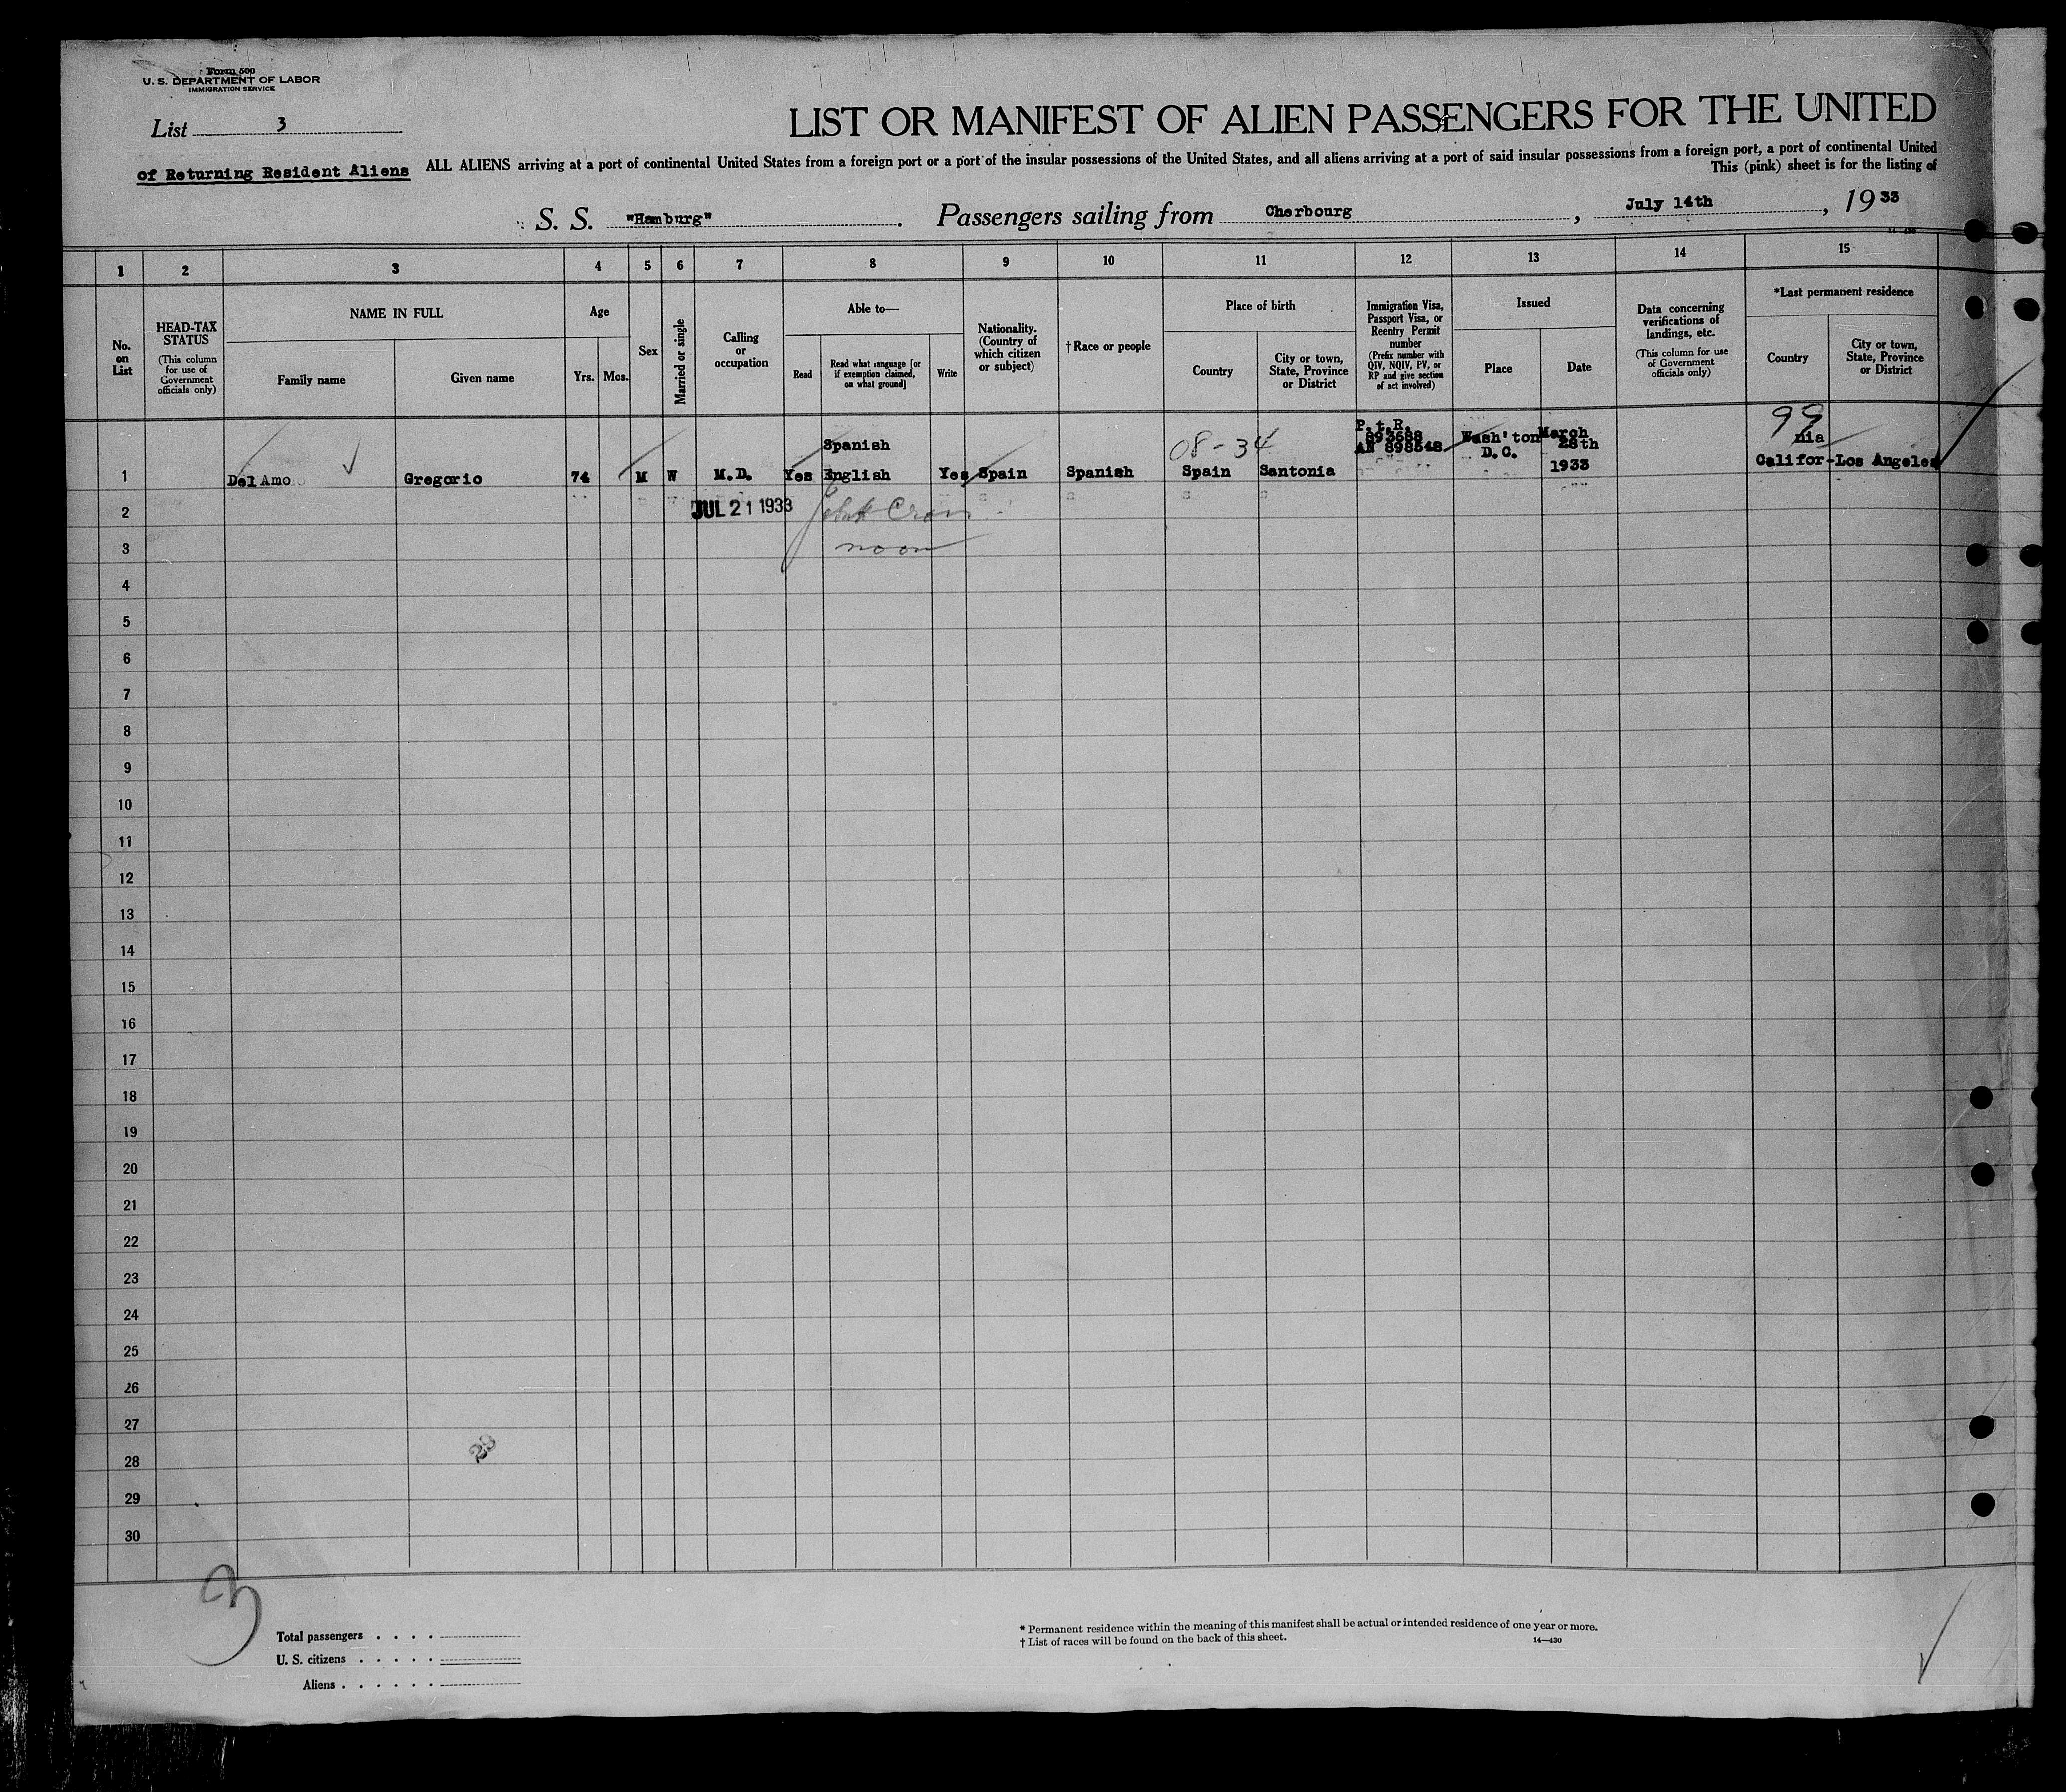 Form 500
U. S. DEPARTMENT OF LABOR
IMMIGRATION SERVICE
List 3
LIST OR MANIFEST OF ALIEN PASSENGERS FOR THE UNITED
of Returning Resident Aliens
ALL ALIENS arriving at a port of continental United States from a foreign port or a port of the insular possessions of the United States, and all aliens arriving at a port of said insular possessions from a foreign port, a port of continental United
This (pink) sheet is for the listing of
S. S. "Hamburg". Passengers sailing from Cherbourg, July 14th, 1933
1 2 3 4 5 6 7 8 9 10 11 12 13 14 15
No. on List
HEAD-TAX STATUS
(This column for use of Government officials only)
NAME IN FULL
Family name
Given name
Age
Yrs. Mos.
Sex
Married or single
Calling or occupation
Able to—
Read
Read what language [or if exemption claimed, on what ground]
Write
Nationality. (Country of which citizen or subject)
†Race or people
Place of birth
Country
City or town, State, Province or District
Immigration Visa, Passport Visa, or Reentry Permit number
(Prefix number with QIV, NQIV, PV, or RP and give section of act involved)
Issued
Place
Date
Data concerning verifications of landings, etc.
(This column for use of Government officials only)
*Last permanent residence
Country
City or town, State, Province or District
1 Del Amo Gregorio 74 M W M.D. Yes Spanish English Yes Spain Spanish 08-34 Spain Santonia P.t.R. 893688 AN 898548 Wash'ton D.C. March 28th 1933 99 Califor-nia Los Angeles
2 JUL 21 1933
3 noon
4
5
6
7
8
9
10
11
12
13
14
15
16
17
18
19
20
21
22
23
24
25
26
27
28
29
30
23
3
Total passengers . . . .
U. S. citizens . . . . .
Aliens . . . . . .
* Permanent residence within the meaning of this manifest shall be actual or intended residence of one year or more.
† List of races will be found on the back of this sheet.
14—430